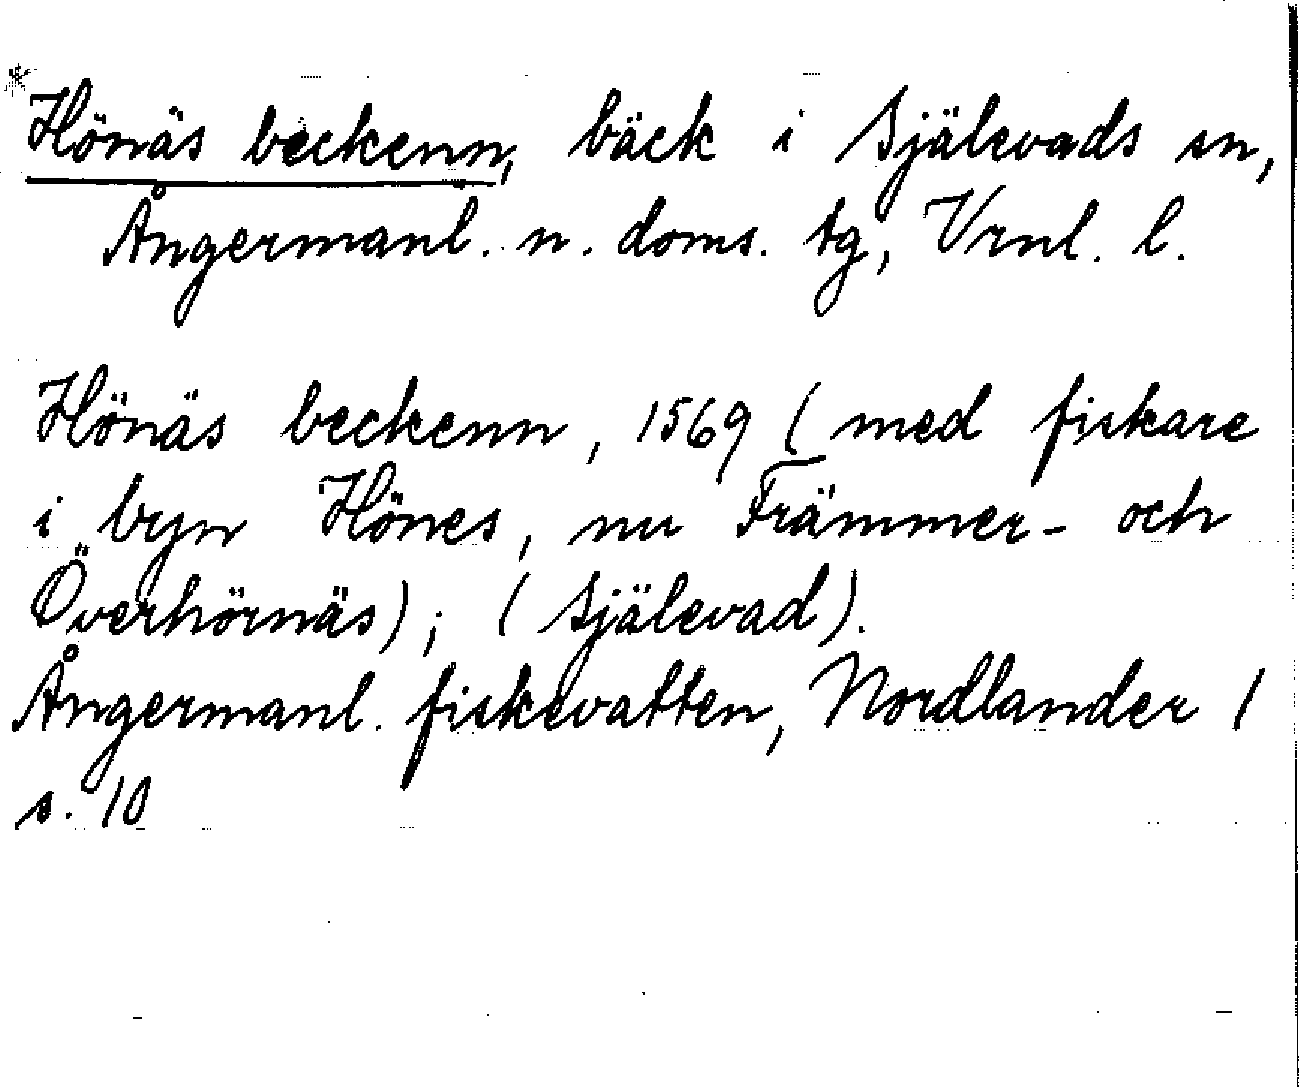 *Hönäs beckenn, bäck i Själevads sn,
Ångermanl. n. doms. tg, Vrnl. l.
Hönäs beckenn, 1569 (med fiskare
i byn Hönes, nu Främmer- och
Överhörnäs); (Själevad).
Ångermanl. fiskevatten, Nordlander 1
s. 10